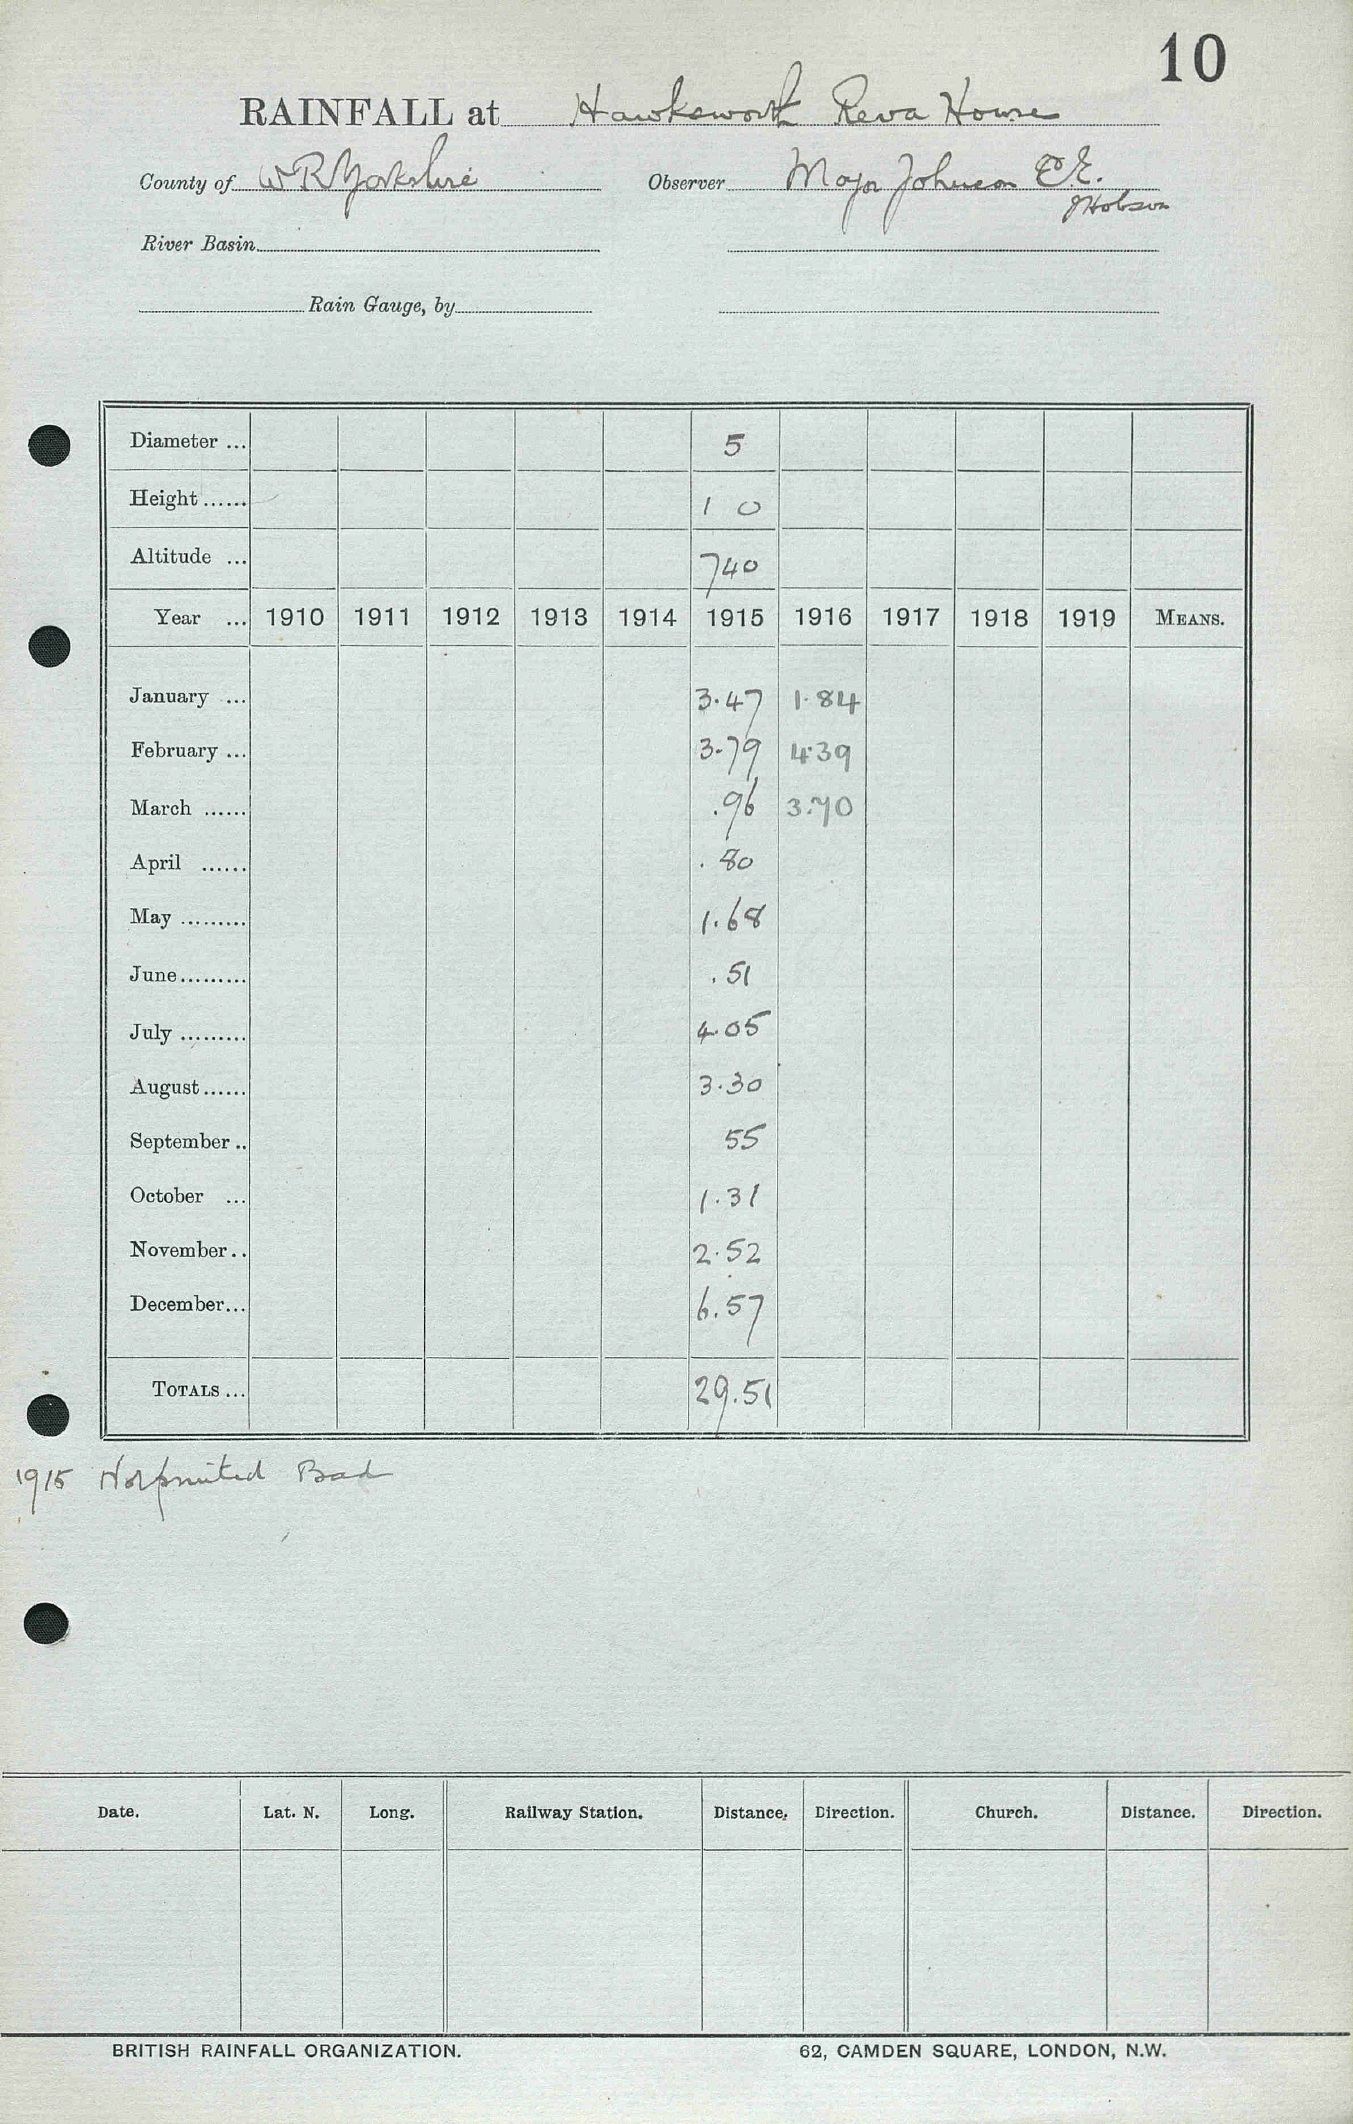 10
RAINFALL at Hawksworth Reva House
County of W R Yorkshire Observer Major Johnson C.E.
J Hobson
River Basin
Rain Gauge, by
Diameter ... 5
Height ...... 1 0
Altitude ... 740
Year ... 1910 1911 1912 1913 1914 1915 1916 1917 1918 1919 MEANS.
January ... 3.47 1.84
February ... 3.79 4.39
March ...... .96 3.70
April ...... .80
May ......... 1.68
June ......... .51
July ......... 4.05
August ...... 3.30
September .. 55
October ... 1.31
November .. 2.52
December ... 6.57
TOTALS ... 29.51
1915 Not printed Bad
Date. Lat. N. Long. Railway Station. Distance. Direction. Church. Distance. Direction.
BRITISH RAINFALL ORGANIZATION. 62, CAMDEN SQUARE, LONDON, N.W.